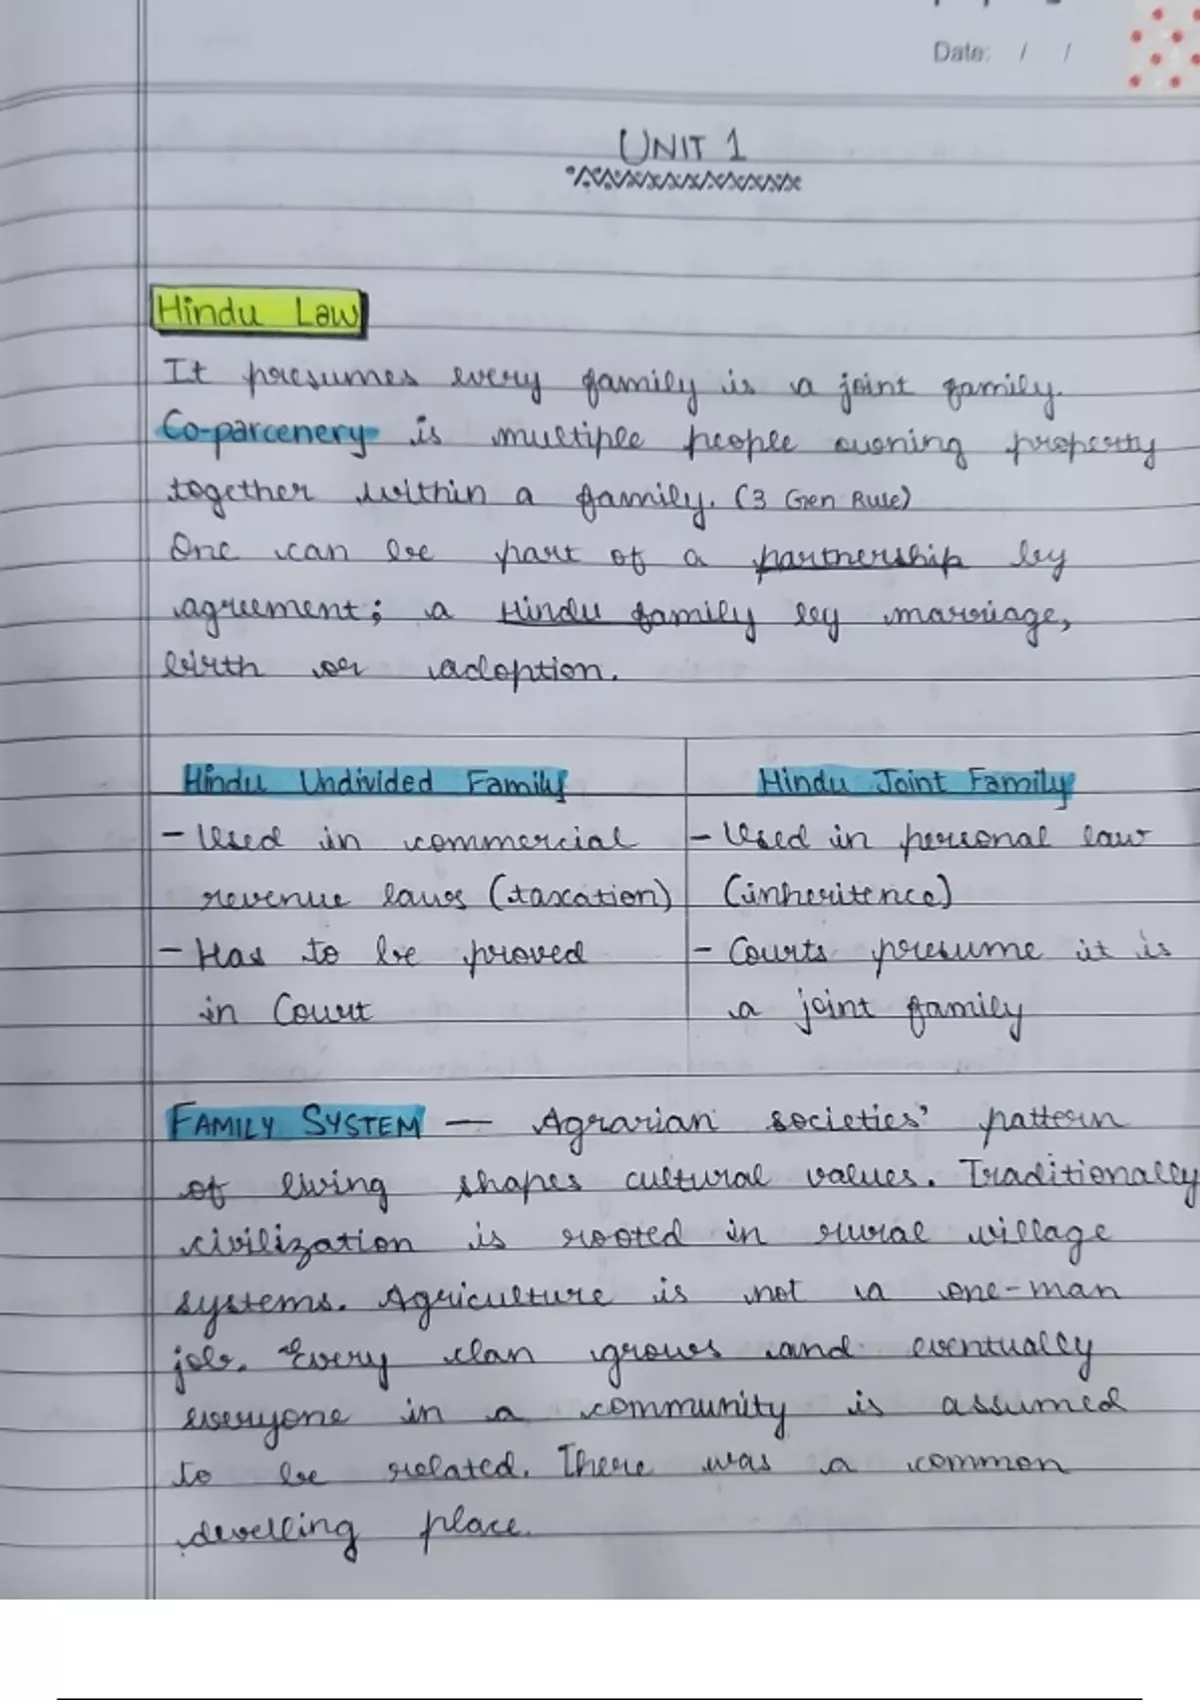 Date: / /
UNIT 1
Hindu Law
It presumes every family is a joint family.
Co-parcenery is multiple people owning property
together within a family. (3 Gen Rule)
One can be part of a partnership by
agreement; a Hindu family by marriage,
birth or adoption.
Hindu Undivided Family
- Used in commercial
revenue laws (taxation)
- Has to be proved
in Court
Hindu Joint Family
- Used in personal law
(inheritence)
- Courts presume it is
a joint family
FAMILY SYSTEM — Agrarian societies' pattern
of living shapes cultural values. Traditionally
civilization is rooted in rural village
systems. Agriculture is not a one-man
job. Every clan grows and eventually
everyone in a community is assumed
to be related. There was a common
dwelling place.